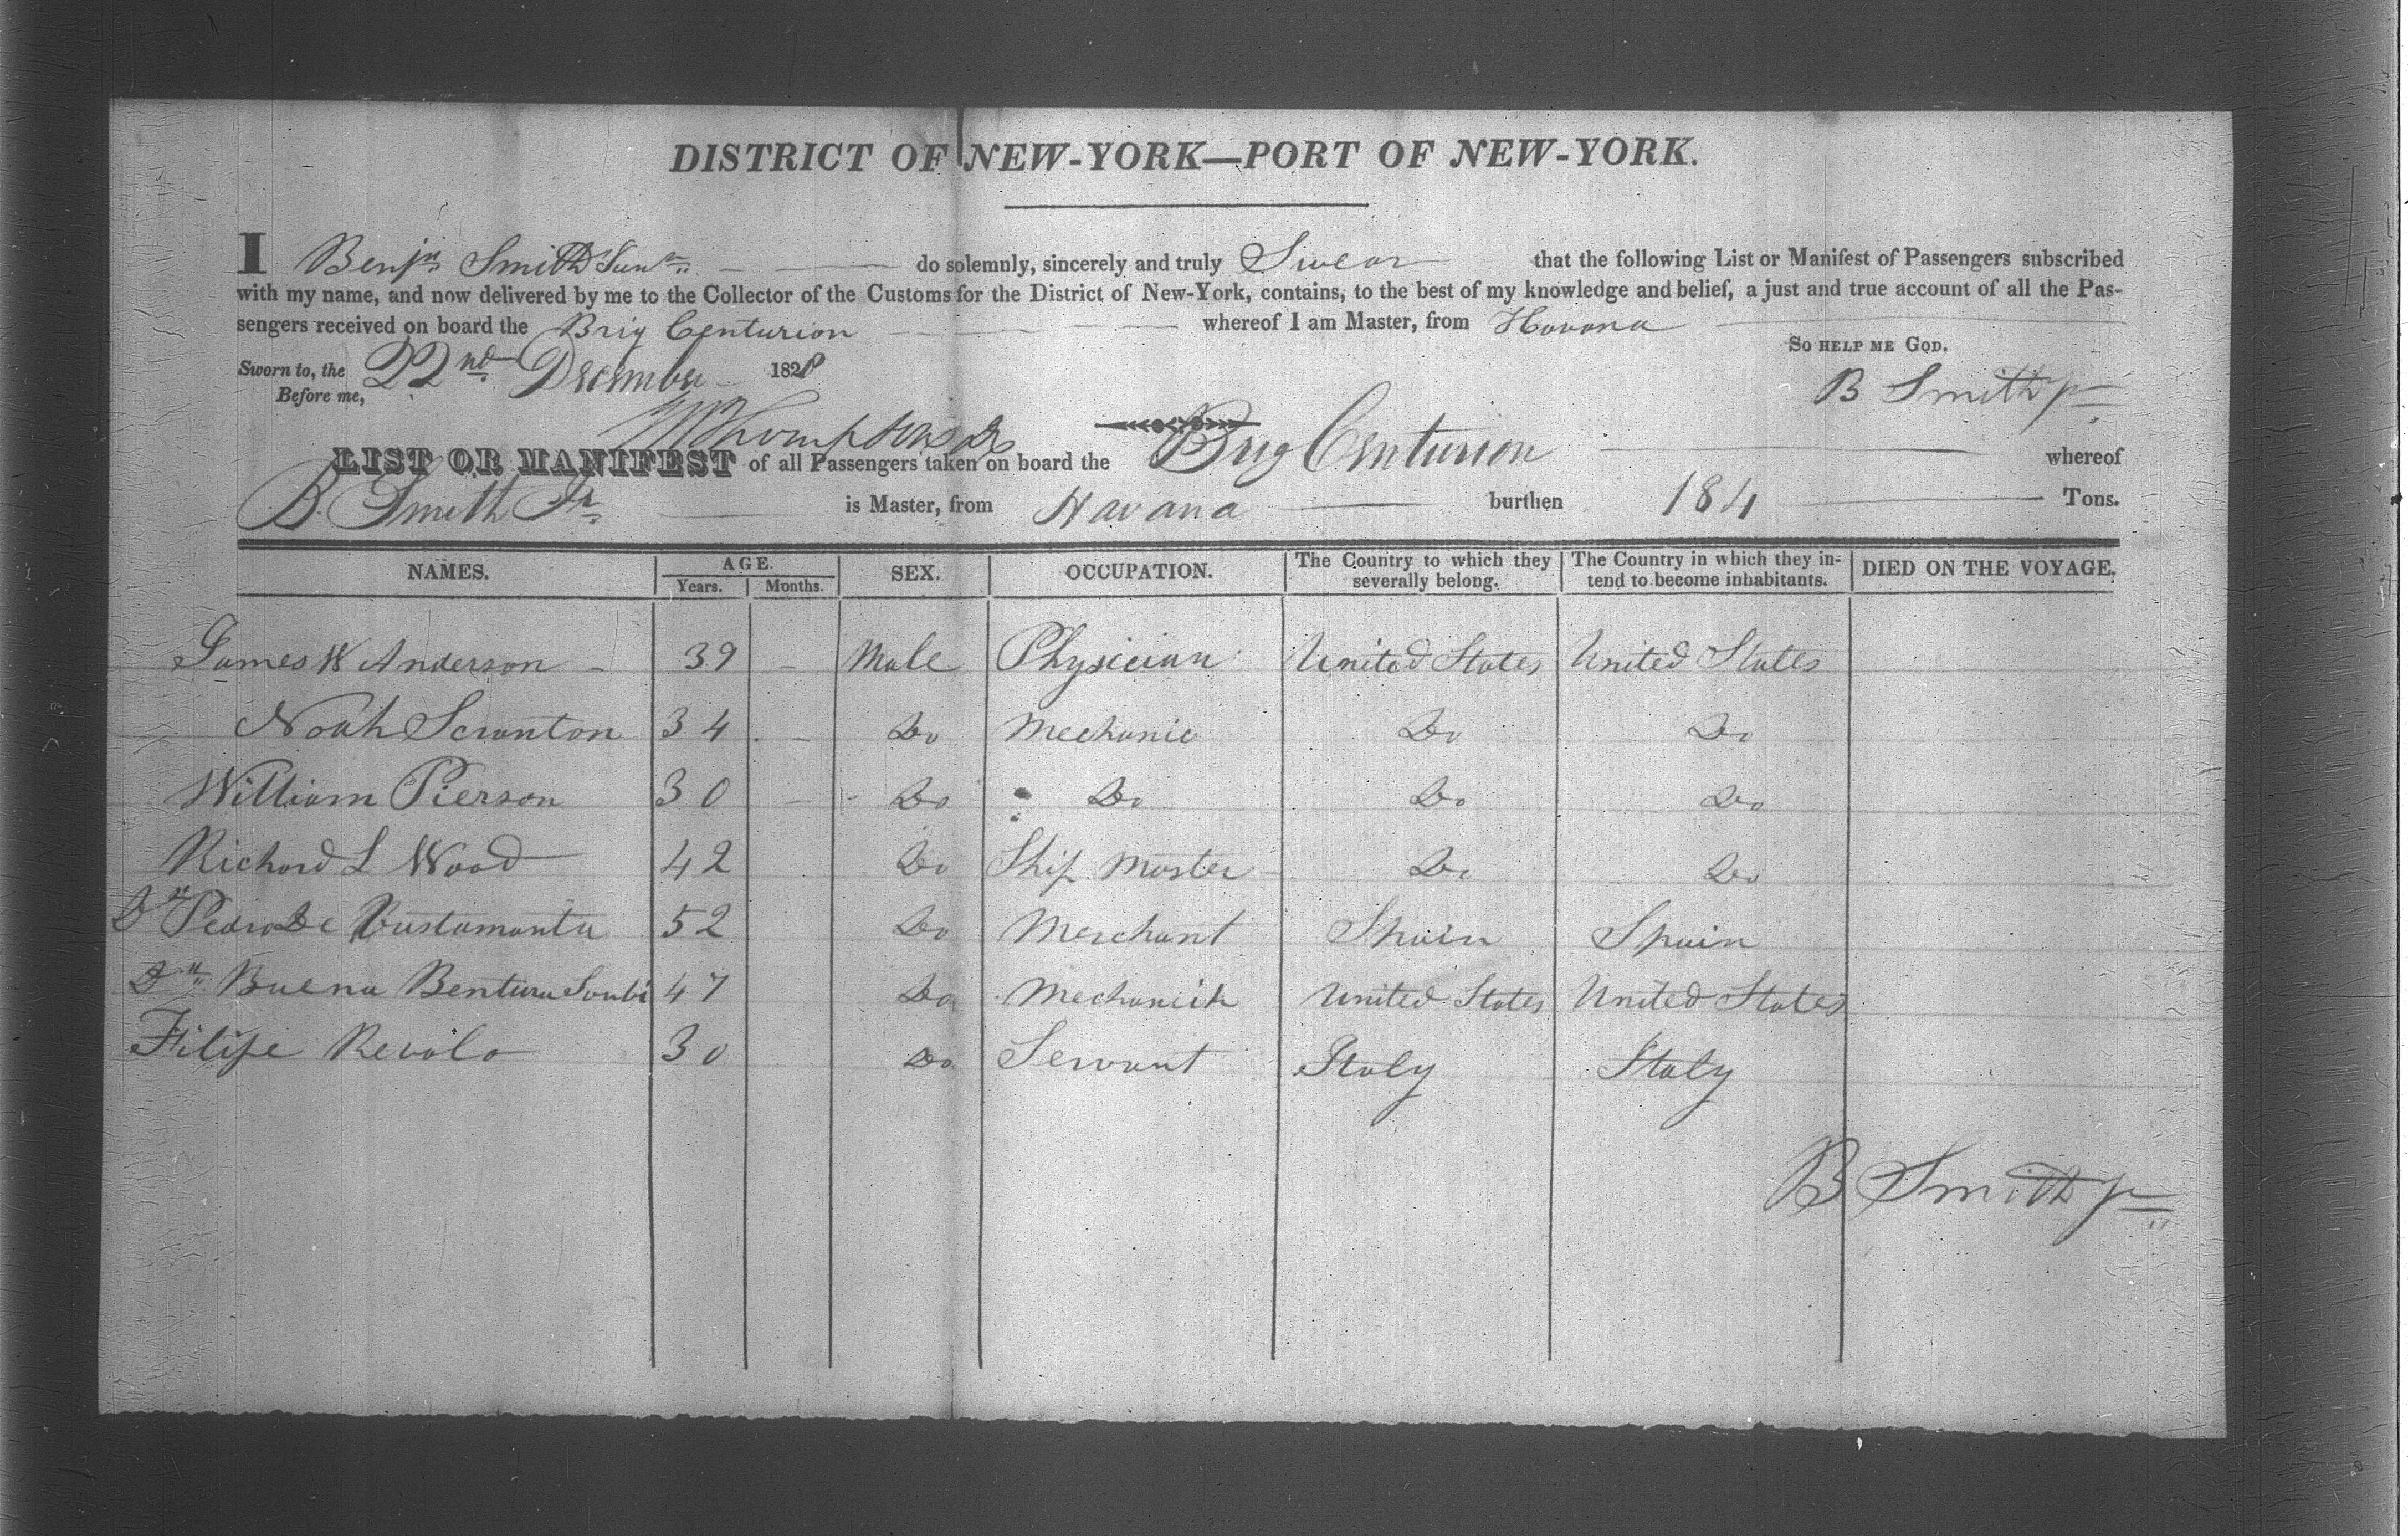 DISTRICT OF NEW-YORK—PORT OF NEW-YORK.
I Benjn Smith Junr do solemnly, sincerely and truly Swear that the following List or Manifest of Passengers subscribed
with my name, and now delivered by me to the Collector of the Customs for the District of New-York, contains, to the best of my knowledge and belief, a just and true account of all the Pas-
sengers received on board the Brig Centurion whereof I am Master, from Havana
SO HELP ME GOD.
Sworn to, the 22nd December 1828
Before me,
B Smith Jr
LIST OR MANIFEST of all Passengers taken on board the Brig Centurion whereof
B. Smith Jr is Master, from Havana burthen 184 Tons.
NAMES. AGE. Years. Months. SEX. OCCUPATION. The Country to which they severally belong. The Country in which they in-tend to become inhabitants. DIED ON THE VOYAGE.
James W Anderson - 39 - Male Physician United States United States
Noah Scranton 34 - Do Mechanic Do Do
William Pierson 30 - Do Do Do Do
Richard L Wood 42 Do Ship Master Do Do
Dn Pedro De Bustamanta 52 Do Merchant Spain Spain
Dn Buena Bentura 47 Do Mechanick United States United States
Filipe Revolo 30 Do Servant Italy Italy
B Smith Jr